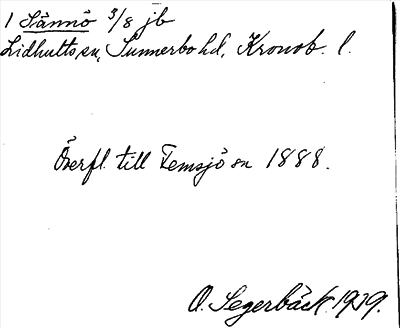 1 Sännö 3/8 jb
Lidhults sn, Sunnerbo hd, Kronob. l.
Överfl. till Femsjö sn 1888.
O. Segerbäck 1939.